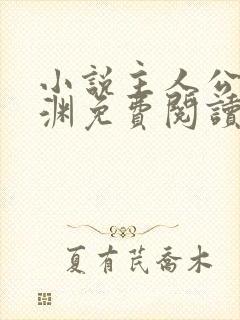 小說主人公
淵免費閱讀
夏有芪喬木